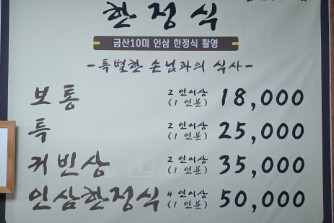 한정식
금산10미 인삼 한정식 촬영
-특별한 손님과의 식사-
보통 2인이상 (1인분) 18,000
특 2인이상 (1인분) 25,000
귀빈상 2인이상 (1인분) 35,000
인삼한정식 4인이상 (1인분) 50,000